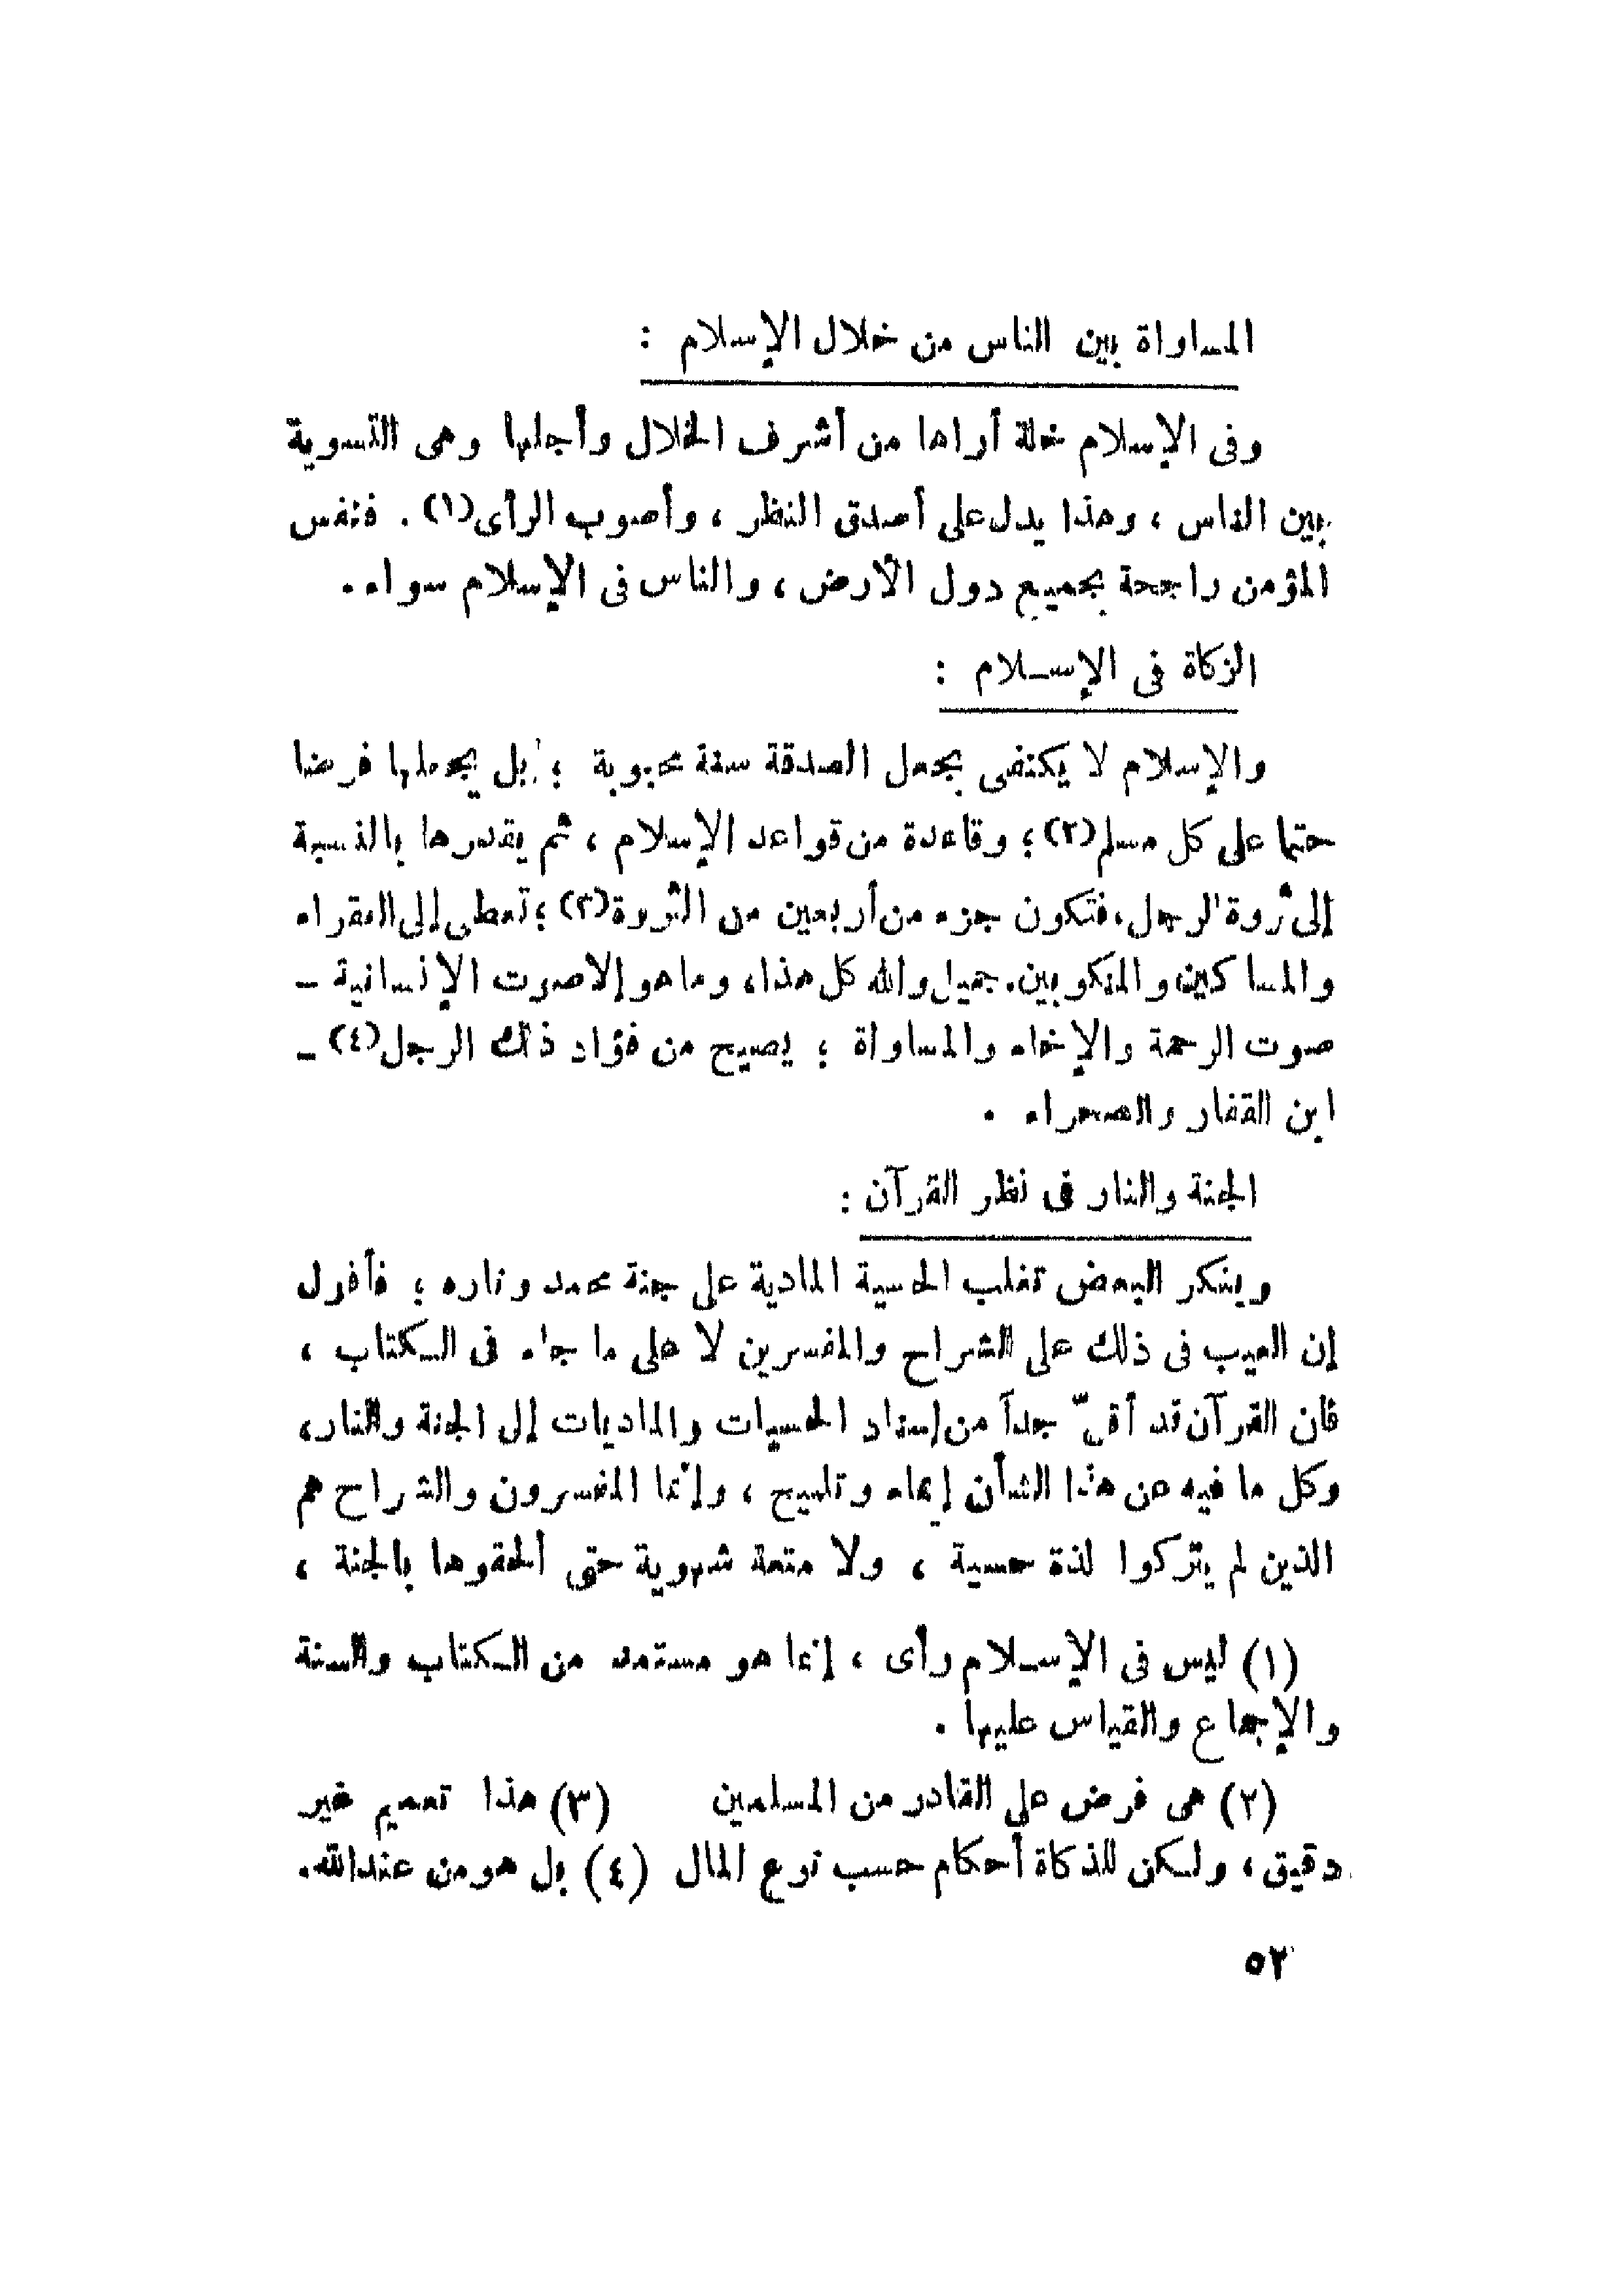 المساواة بين الناس من خلال الإسلام :
وفى الإسلام خلة أراها من أشرف الخلال وأجلها وهى التسوية
بين الناس ، وهذا يدل على أصدق النظر ، وأصوب الرأى(١) . فنفس
المؤمن راجحة بجميع دول الأرض ، والناس فى الإسلام سواء .
الزكاة فى الإسـلام :
والإسلام لا يكتفى بجعل الصدقة سنة محبوبة ؛ بل يجعلها فرضا
حتما على كل مسلم(٢) ؛ وقاعدة من قواعد الإسلام ، ثم يقدرها بالنسبة
إلى ثروة الرجل ، فتكون جزء من أربعين من الثروة(٣) ؛ تعطى إلى الفقراء
والمساكين والمنكوبين . جميل والله كل هذا ، وما هو إلا صوت الإنسانية -
صوت الرحمة والإخاء والمساواة ؛ يصيح من فؤاد ذلك الرجل(٤) -
ابن القفار والصحراء .
الجنة والنار فى نظر القرآن :
وينكر البعض تغلب الحسية المادية على جنة محمد وناره ؛ فأقول
إن العيب فى ذلك على الشراح والمفسرين لا على ما جاء فى الـكتاب ،
فان القرآن قد أقلّ جداً من إسناد الحسيات والماديات إلى الجنة والنار ،
وكل ما فيه عن هذا الشأن إيماء وتلميح ، وإنما المفسرون والشراح هم
الذين لم يتركوا لذة حسية ، ولا متعة شهوية حتى ألحقوها بالجنة ،
(١) ليس فى الإسـلام رأى ، إنما هو مستمد من الـكتاب والسنة
والإجماع والقياس عليها .
(٢) هى فرض على القادر من المسلمين (٣) هذا تعميم غير
دقيق ، ولـكن للذكاة أحكام حسب نوع المال (٤) بل هو من عند الله .
٥٢